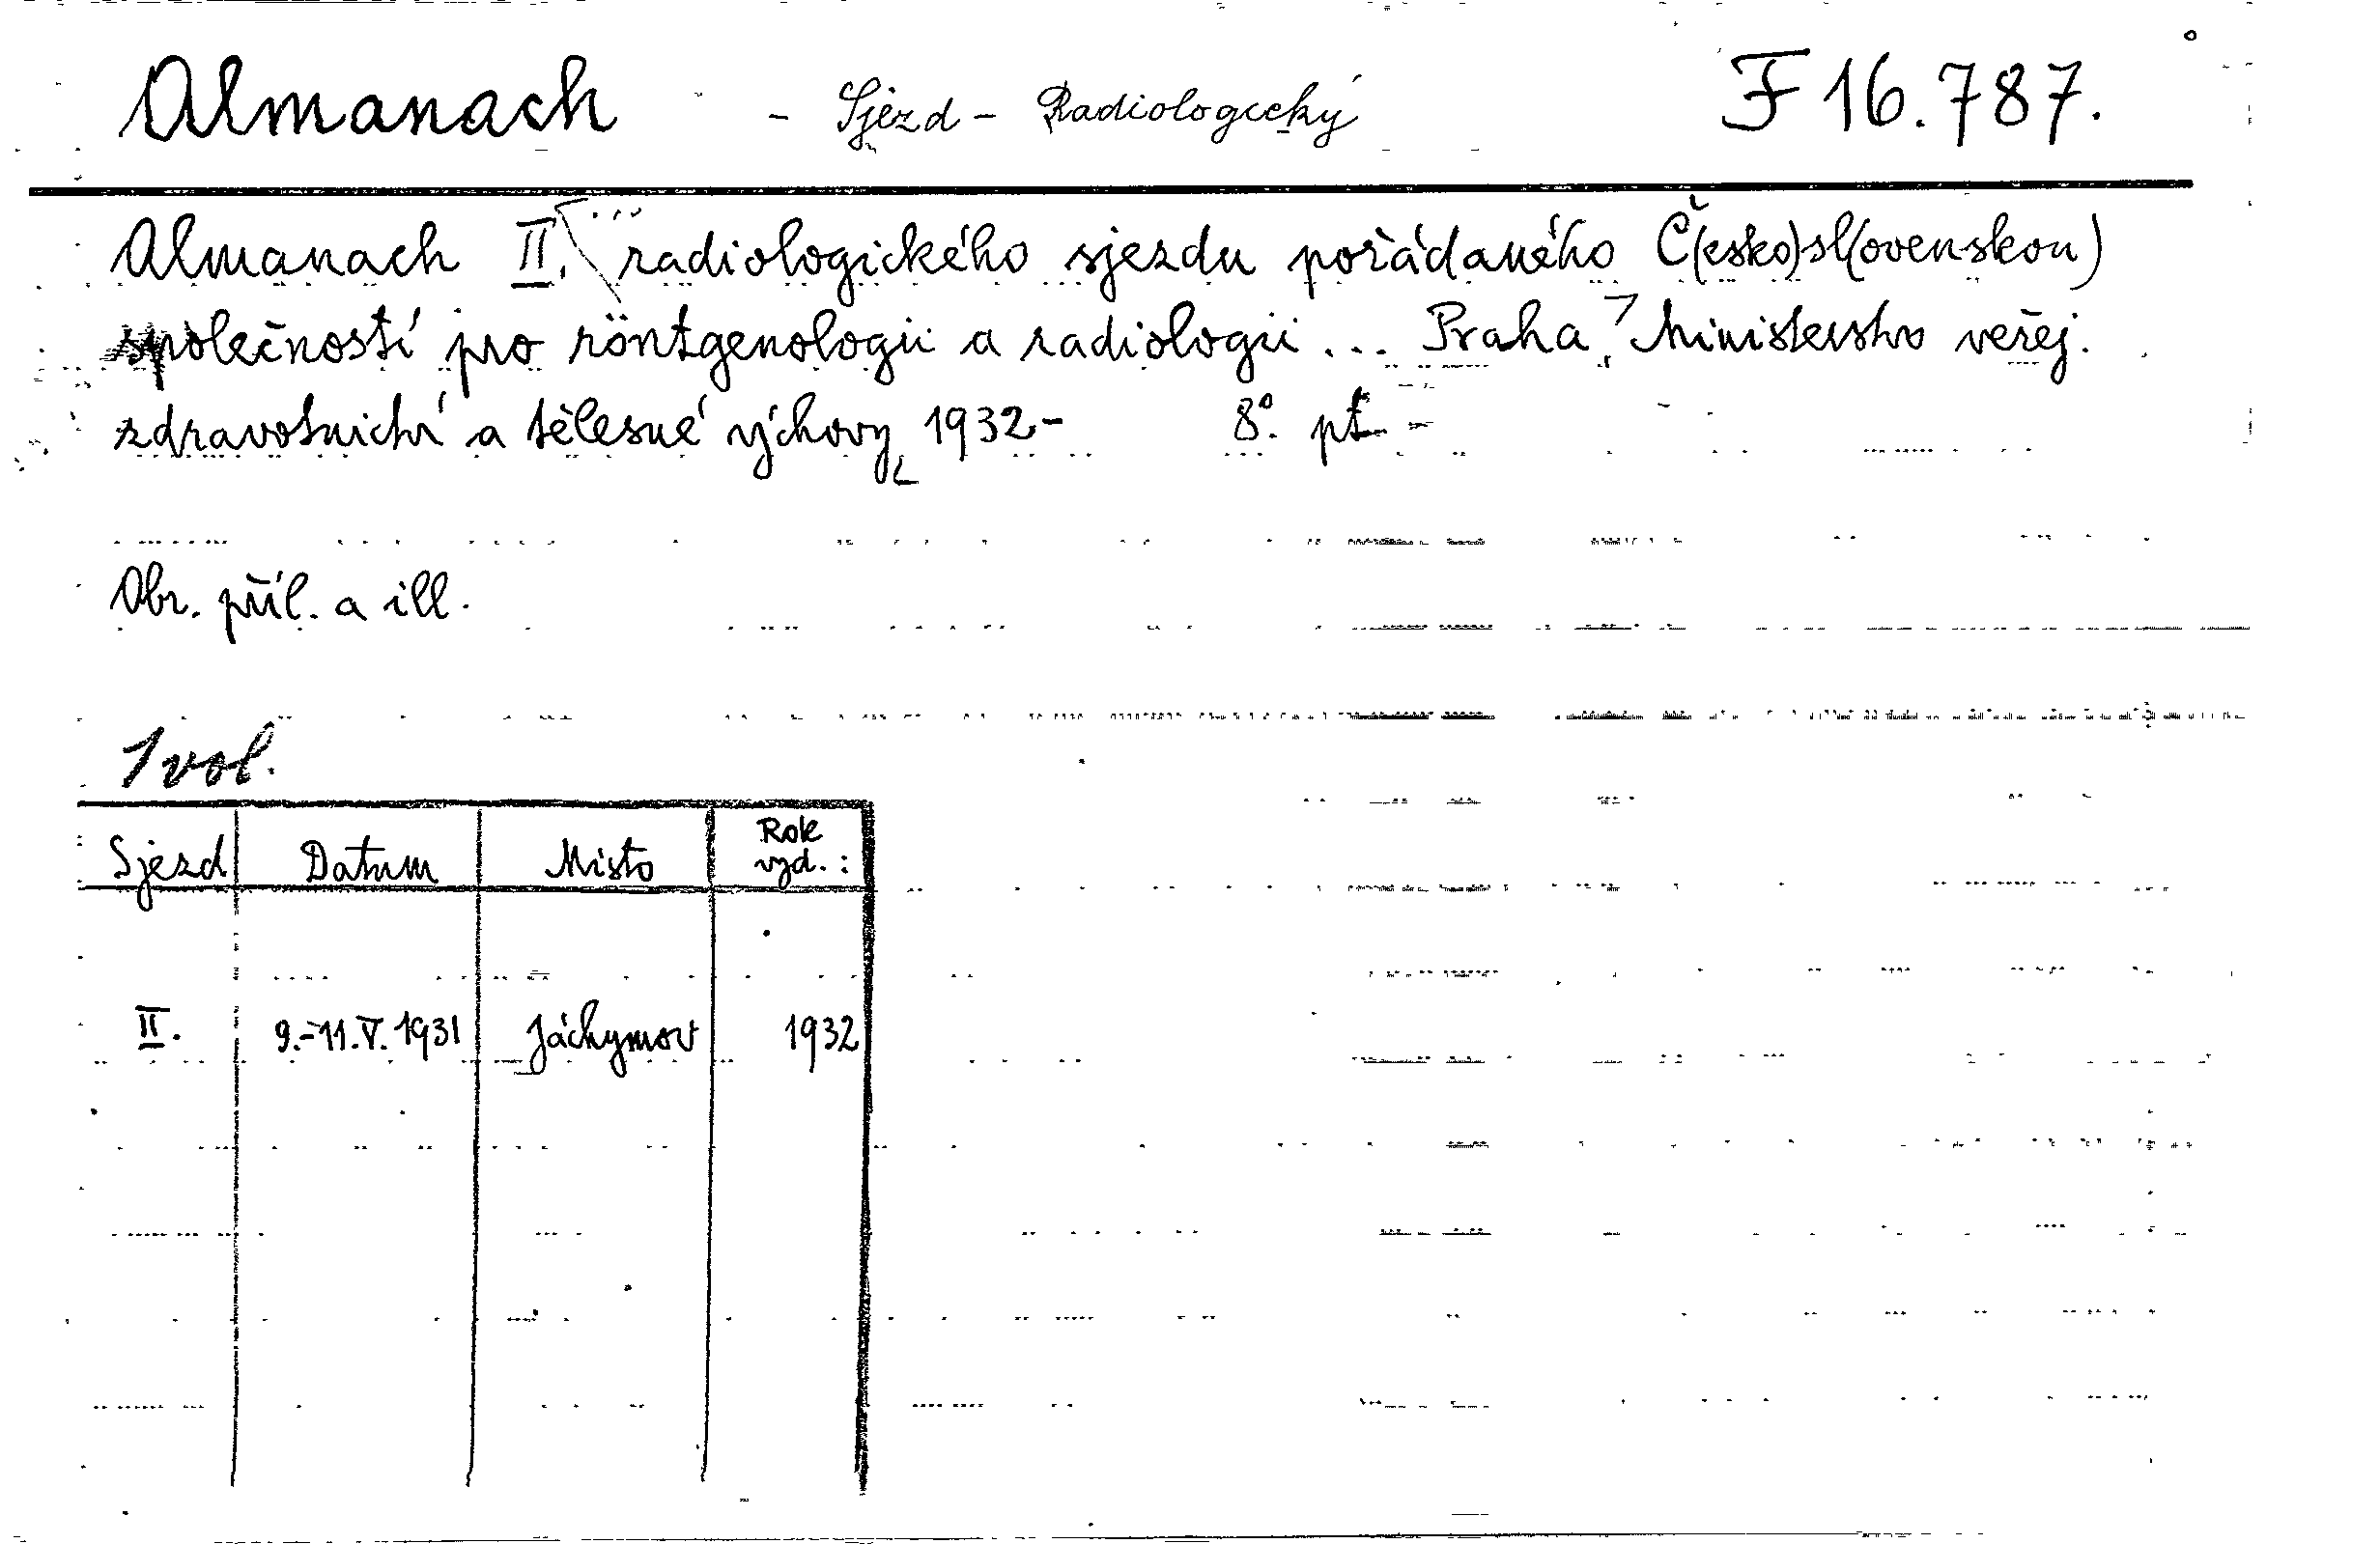 Almanach - Sjezd - Radiologický F 16.787.
Almanach II. ... radiologického sjezdu pořádaného Č(esko)sl(ovenskou)
společností pro röntgenologii a radiologii ... Praha, Ministerstvo veřej.
zdravotnictví a tělesné výchovy 1932- 8°. pť -
Obr. příl. a ill.
1 vol.
Sjezd Datum Místo Rok vyd.:
II. 9.-11.V.1931 Jáchymov 1932